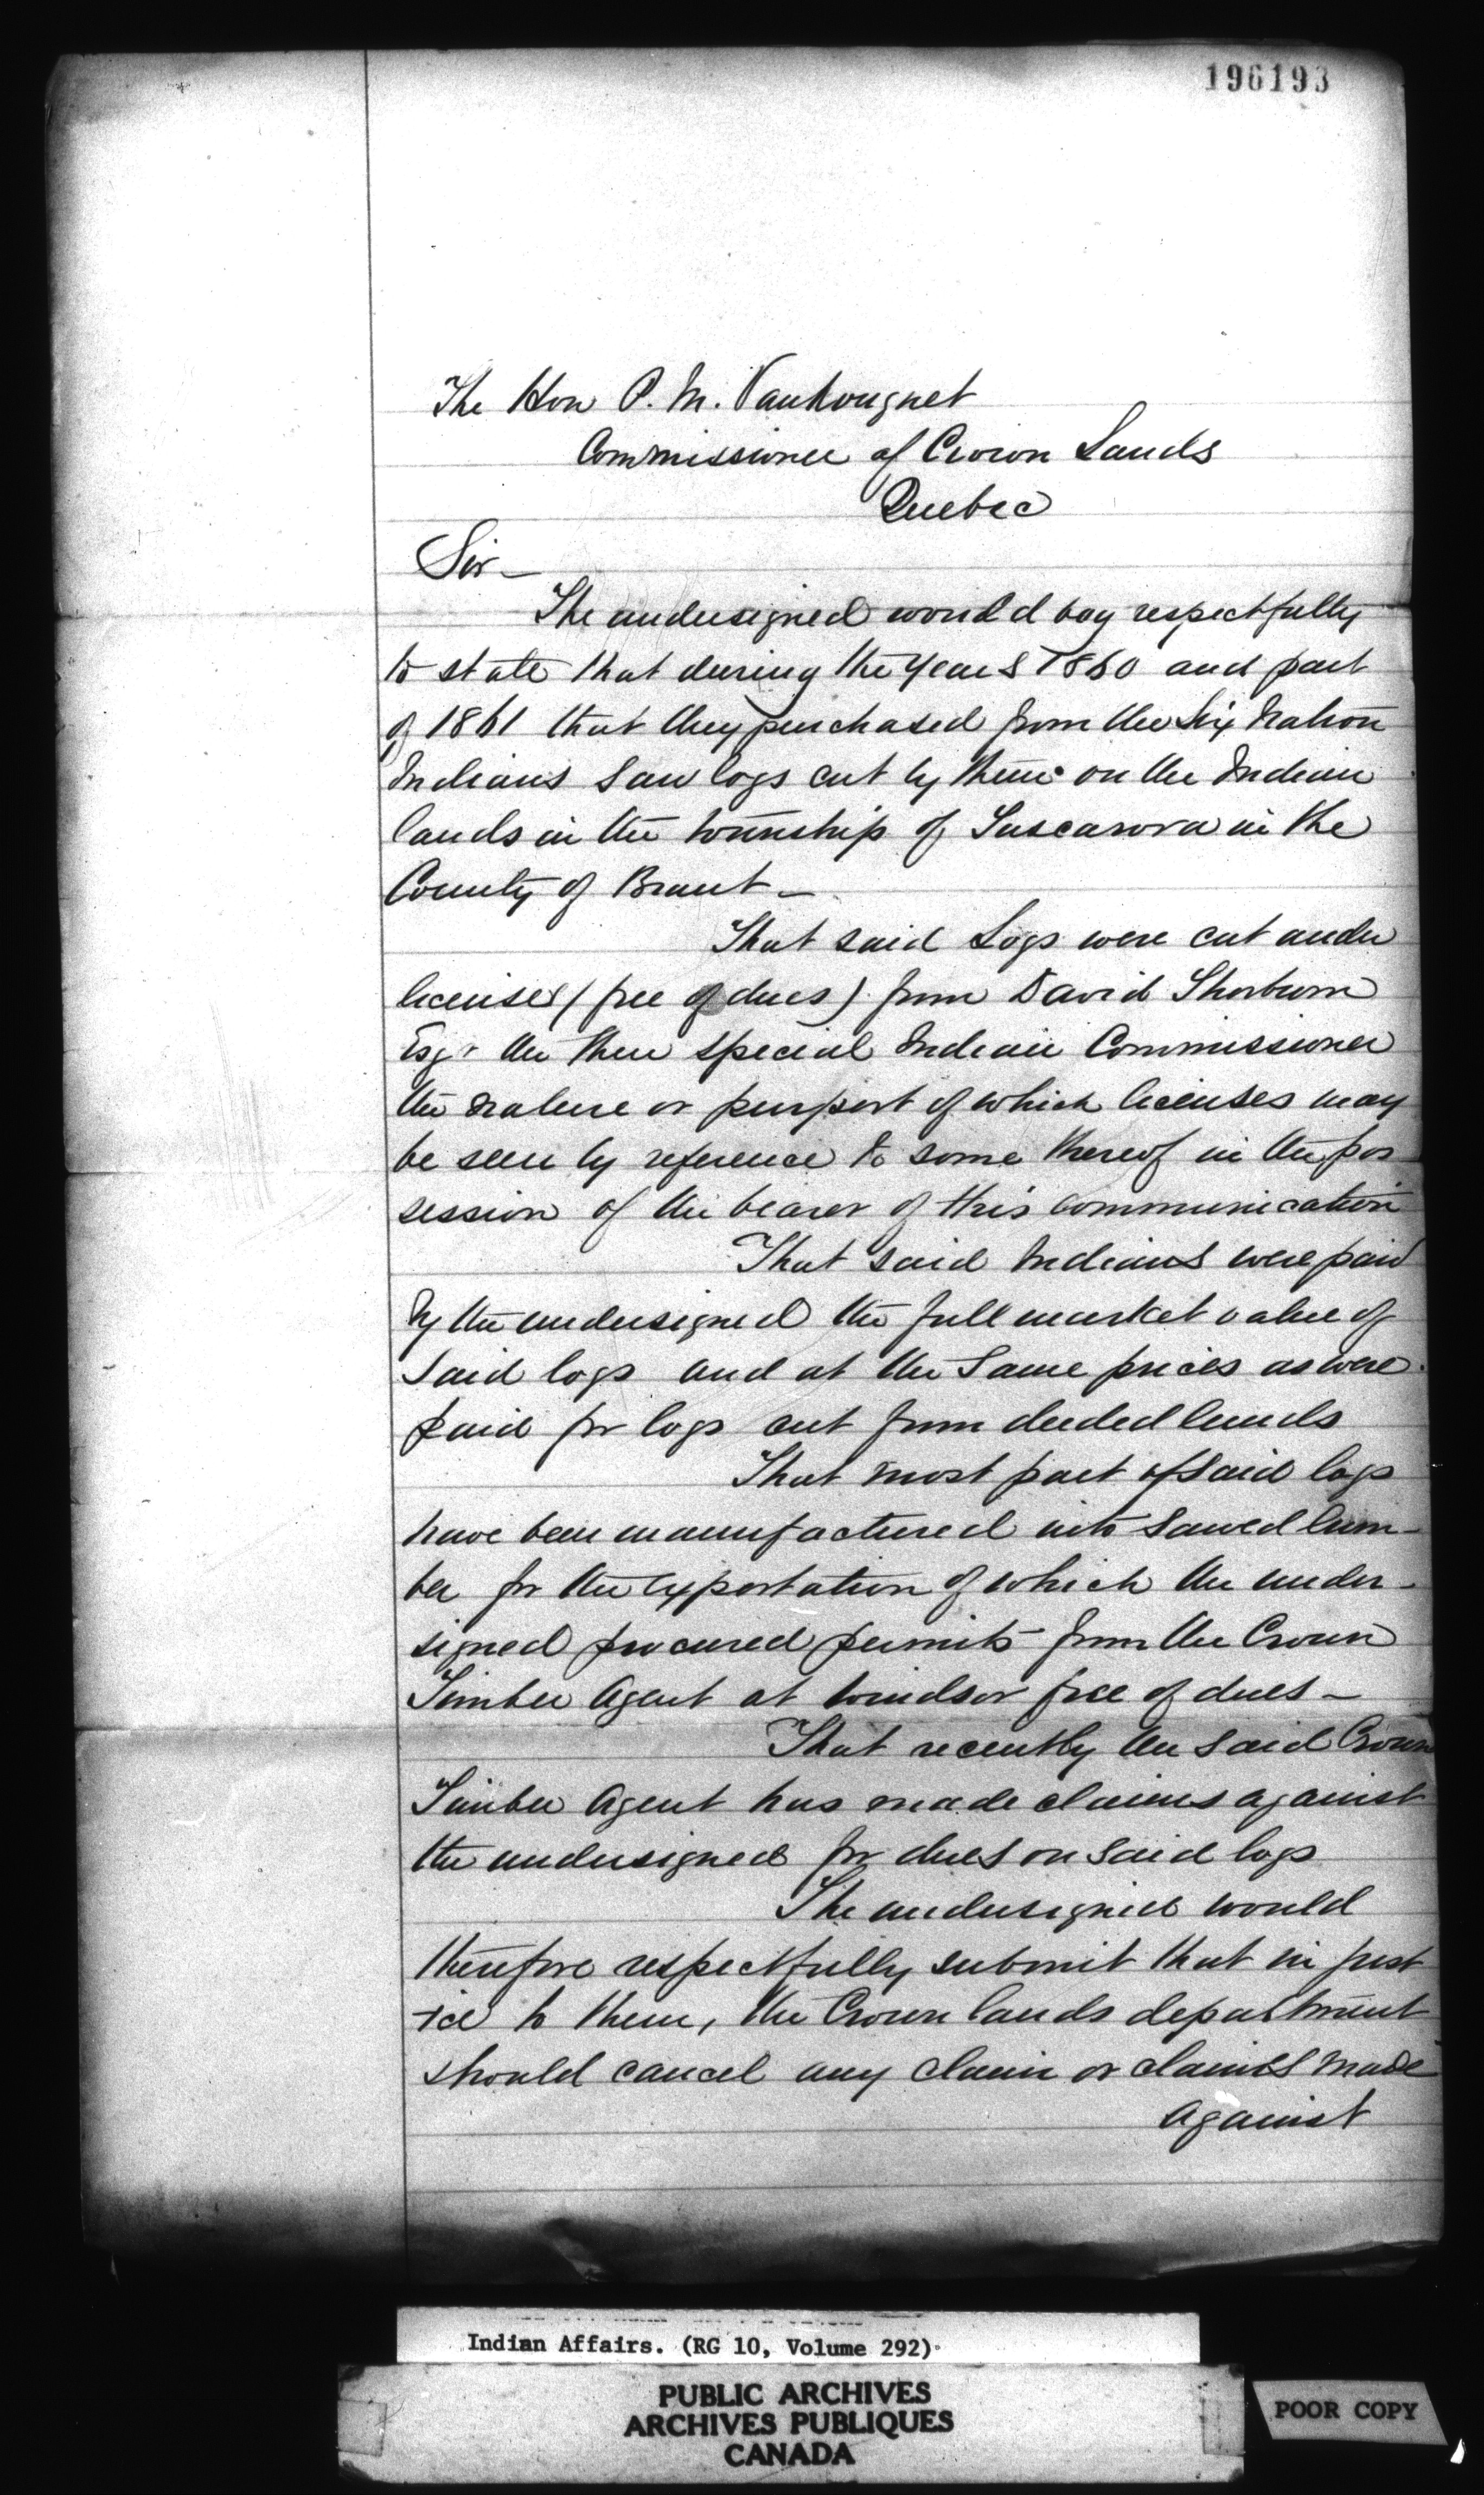 196193
The Hon P. M. Vankougnet
Commissioner of Crown Lands
Quebec
Sir —
The undersigned would beg respectfully
to state that during the years 1860 and part
of 1861 that they purchased from the Six Nation
Indians Saw logs cut by them on the Indian
lands in the township of Tuscarora in the
County of Brant —
That said Logs were cut under
licenses (free of dues) from David Thorburn
Esqr the then special Indian Commissioner
the nature or purport of which licenses may
be seen by reference to some thereof in the pos
session of the bearer of this communication
That said Indians were paid
by the undersigned the full market value of
said logs and at the same prices as were
paid for logs cut from deeded lands
That most part of said logs
have been manufactured into sawed lum-
ber for the exportation of which the under-
signed procured permits from the Crown
Timber Agent at Windsor free of dues —
That recently the said Crown
Timber Agent has made claims against
the undersigned for dues on said logs
The undersigned would
therefore respectfully submit that in just
-ice to them, the Crown lands department
should cancel any claim or claims made
against
Indian Affairs. (RG 10, Volume 292)
PUBLIC ARCHIVES
ARCHIVES PUBLIQUES
CANADA
POOR COPY